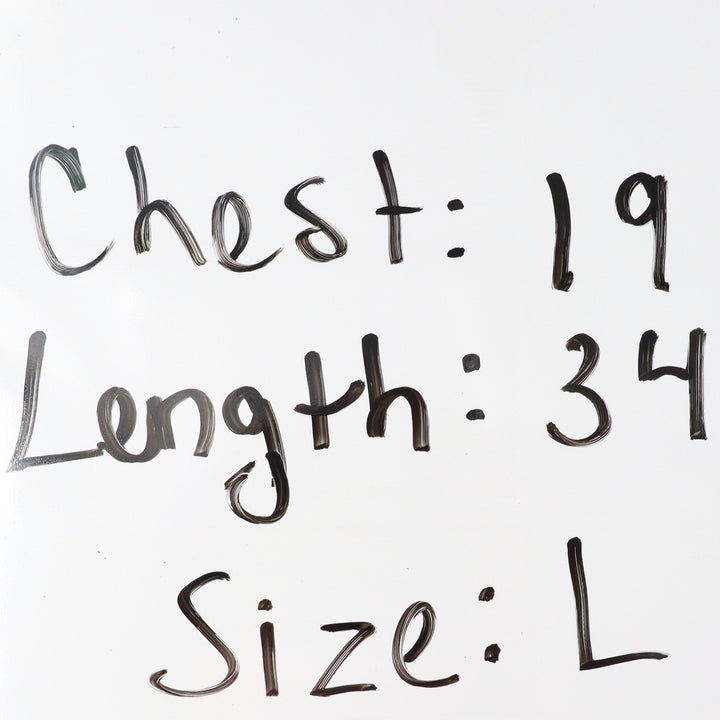 Chest: 19
Length: 34
Size: L